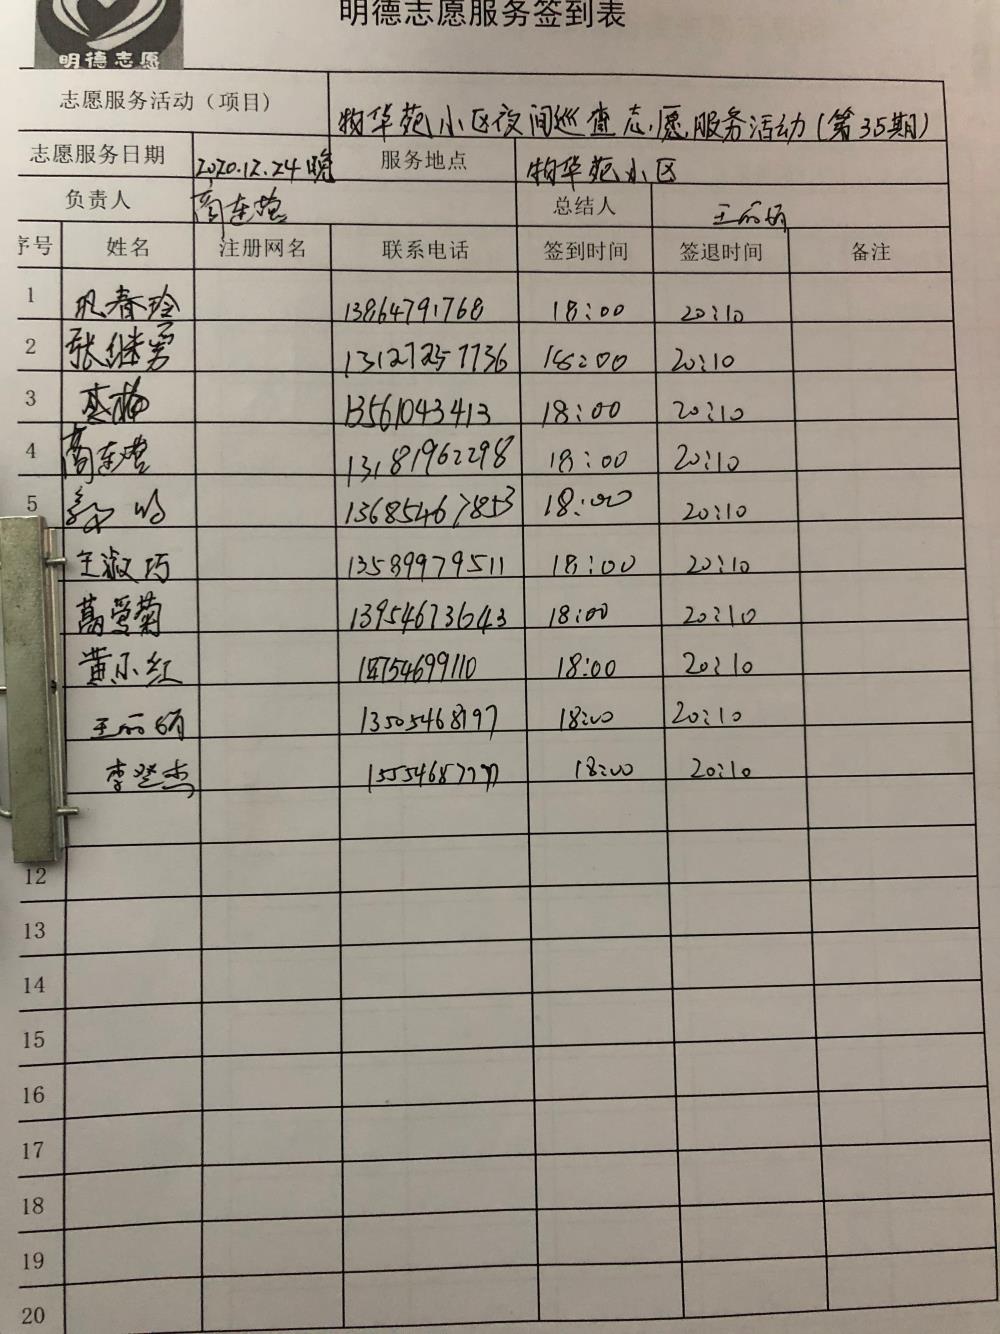 明德志愿服务签到表
明德志愿
志愿服务活动（项目） 物华苑小区夜间巡查志愿服务活动(第35期)
志愿服务日期 2020.12.24晚 服务地点 物华苑小区
负责人 总结人
序号 姓名 注册网名 联系电话 签到时间 签退时间 备注
1 春玲 13864791768 18:00 20:10
2 张继勇 18:00 20:10
3 13561043413 18:00 20:10
4 13181962298 18:00 20:10
5 13685467853 18:00 20:10
王淑巧 13589979511 18:00 20:10
葛爱菊 13954673643 18:00 20:10
黄小红 18:00 20:10
13505468197 18:00 20:10
李登杰 18:00 20:10
12
13
14
15
16
17
18
19
20